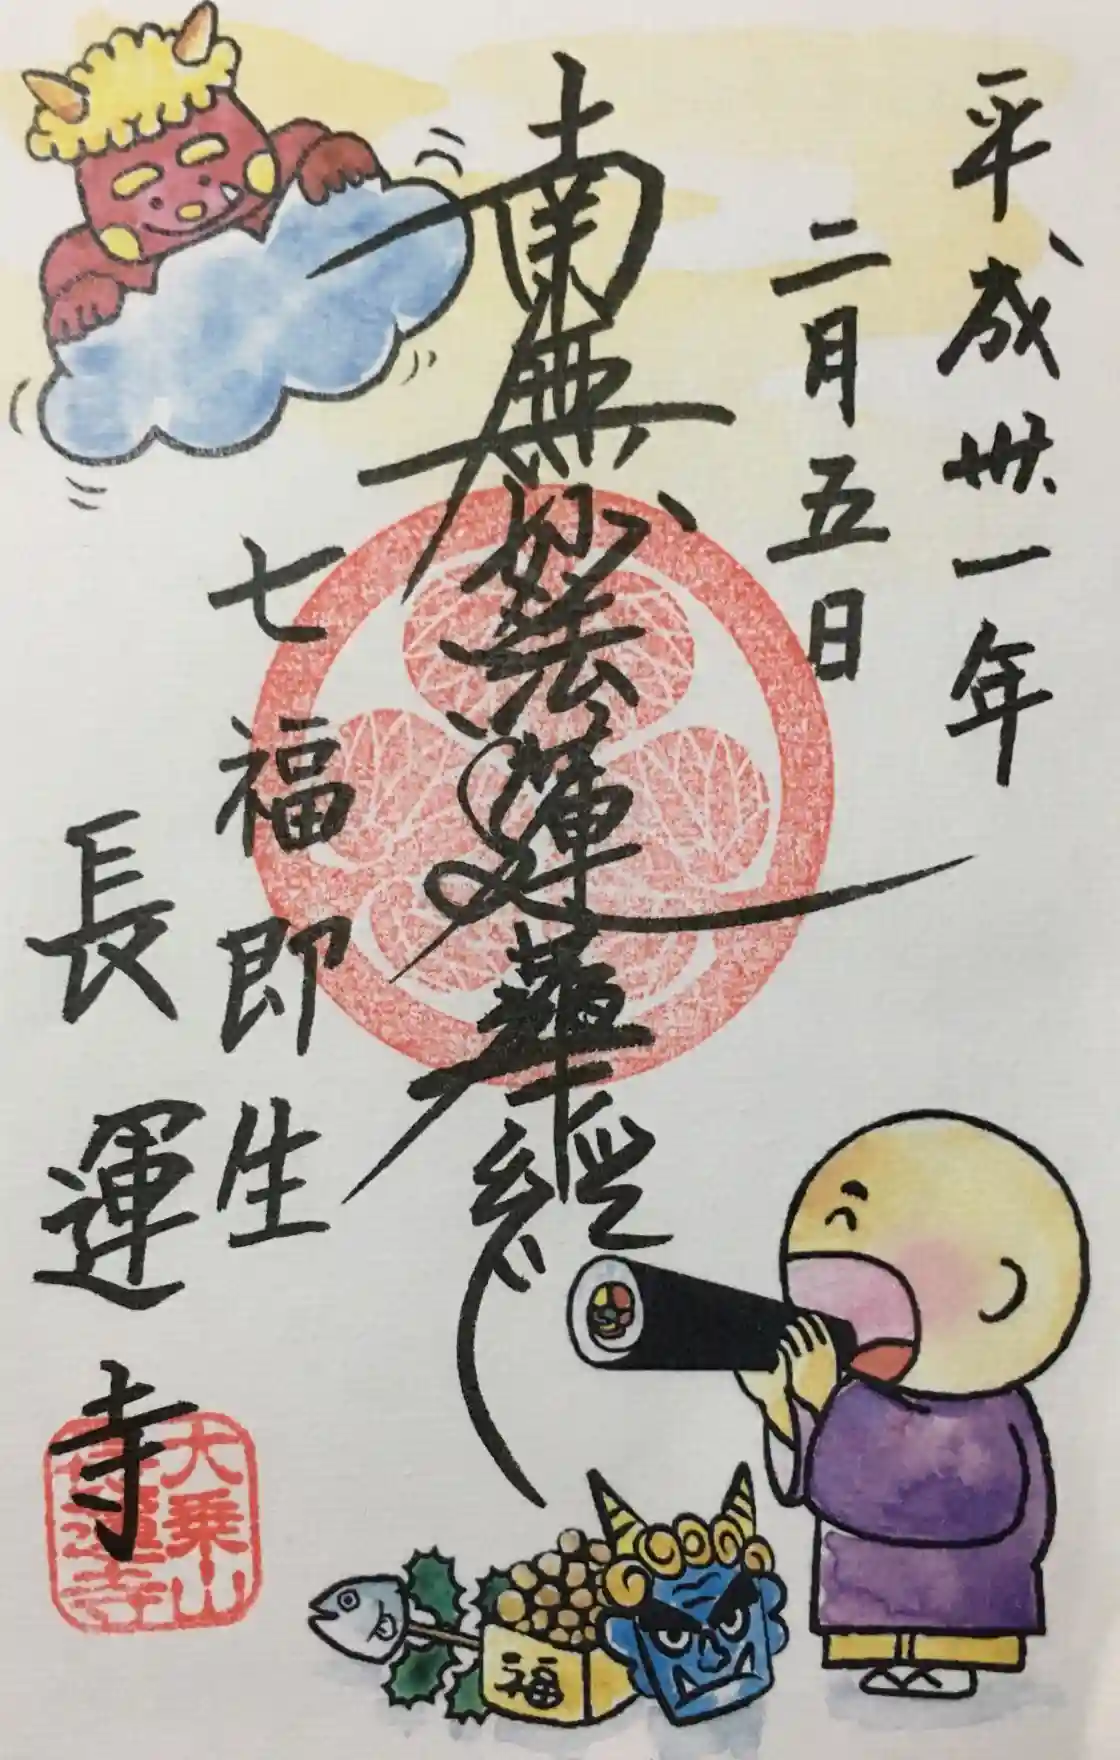 平成卅一年
二月五日
南無妙法蓮華経
七福即生
長運寺
大乗山
長運寺
福